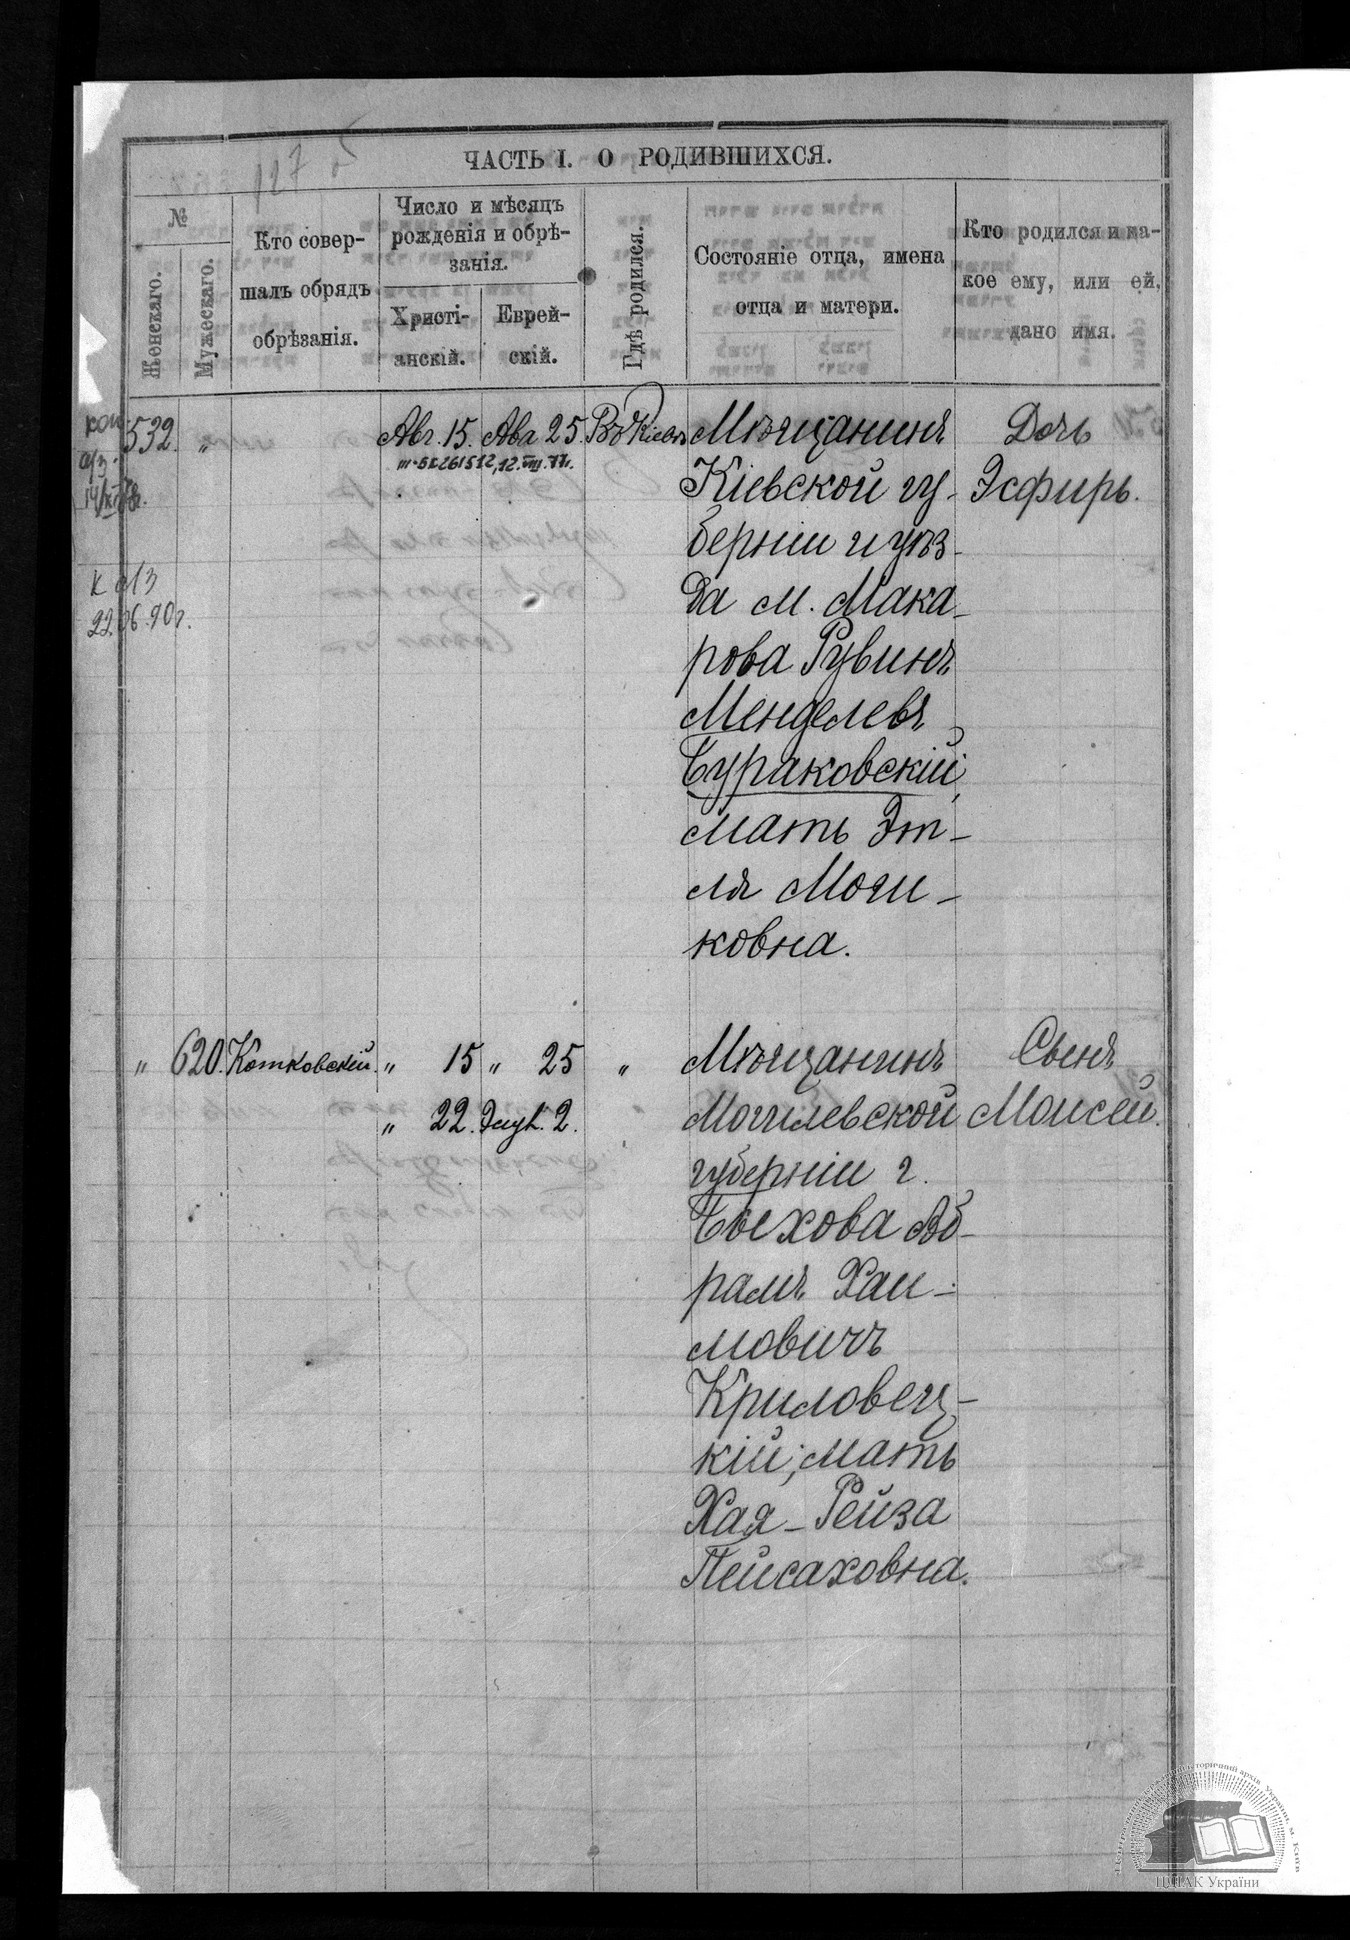 127
ЧАСТЬ I. О РОДИВШИХСЯ.
№
Женскаго.
Мужескаго.
Кто совер-
шалъ обрядъ
обрѣзанія.
Число и мѣсяцъ
рожденія и обрѣ-
занія.
Христі-
анскій.
Еврей-
скій.
Гдѣ родился.
Состояніе отца, имена
отца и матери.
Кто родился и ка-
кое ему, или ей,
дано имя.
532. " Авг. 15. Ава 25. Въ Кіевѣ
12.VIII.77г.
к а/з
22.06.90г.
Мѣщанинъ
Кіевской гу-
берніи и уѣз-
да м. Мака-
рова Рувинъ
Менделевъ
Бураковскій,
мать Эт-
ля Моги-
ковна.
Дочь
Эсфирь.
" 620. Котковскій. " 15 " 25 "
" 22. Элул. 2.
Мѣщанинъ
Могилевской
губерніи г.
Быхова Аб-
рамъ Хаи-
мовичъ
Криловец-
кій, мать
Хая-Рейза
Пейсаховна.
Сынъ
Моисей.
ЦДІАК України